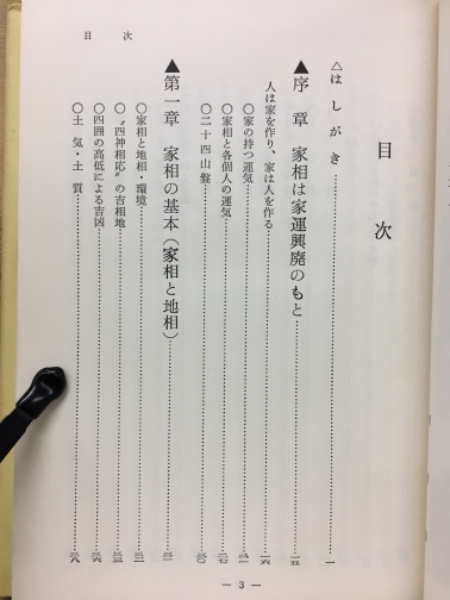 目次
目次
△はしがき……一
▲序章 家相は家運興廃のもと……一五
人は家を作り、家は人を作る……一六
○家の持つ運気
○家相と各個人の運気
○二十四山盤
▲第一章 家相の基本(家相と地相)
○家相と地相・環境
○〝四神相応〟の吉相地
○四囲の高低による吉凶
○土気・土質
— 3 —